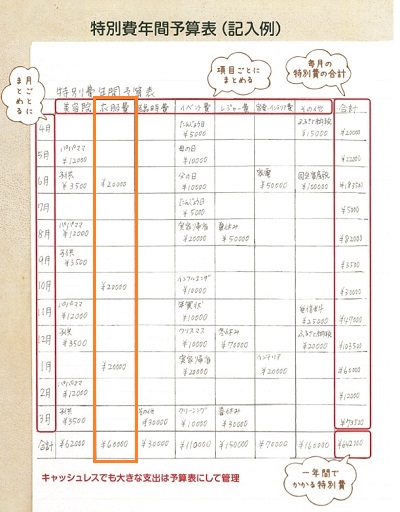 特別費年間予算表（記入例）
月ごとに
まとめる
項目ごとに
まとめる
毎月の
特別費の合計
特別費年間予算表
美容院 衣服費 臨時費 イベント費 レジャー費 家電・インテリア費 その他 合計
4月 たんじょう日 ¥5000 ふるさと納税 ¥15000 ¥20000
5月 パパ/ママ ¥12000 母の日 ¥10000 ¥22000
6月 子供 ¥3500 ¥20000 父の日 ¥10000 家電 ¥50000 固定資産税 ¥100000 ¥183500
7月 たんじょう日 ¥5000 ¥5000
8月 パパ/ママ ¥12000 実家帰省 ¥20000 夏休み ¥50000 ¥82000
9月 子供 ¥3500 ¥3500
10月 ¥20000 インフルエンザ ¥10000 ¥30000
11月 パパ/ママ ¥12000 年賀状 ¥10000 ¥25000 ¥47000
12月 子供 ¥3500 クリスマス ¥10000 冬休み ¥70000 ふるさと納税 ¥20000 ¥103500
1月 ¥20000 実家帰省 ¥20000 インテリア ¥20000 ¥60000
2月 パパ/ママ ¥12000 ¥12000
3月 子供 ¥3500 その他 ¥30000 クリーニング ¥10000 春休み ¥30000 ¥73500
合計 ¥62000 ¥60000 ¥30000 ¥110000 ¥150000 ¥70000 ¥160000 ¥642000
キャッシュレスでも大きな支出は予算表にして管理
一年間で
かかる特別費